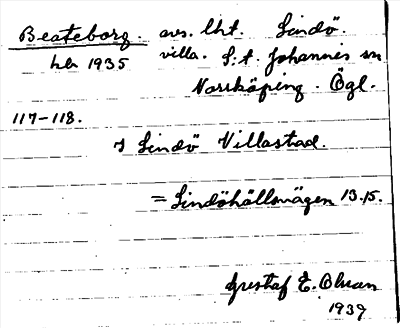 Beateborg. avs. lht. Lindö.
hlr 1935 villa. S:t. Johannes sn
Norrköping. Ögl.
117-118.
I Lindö Villastad.
= Lindöhällsvägen 13.15.
Gustaf E. Olsson
1939